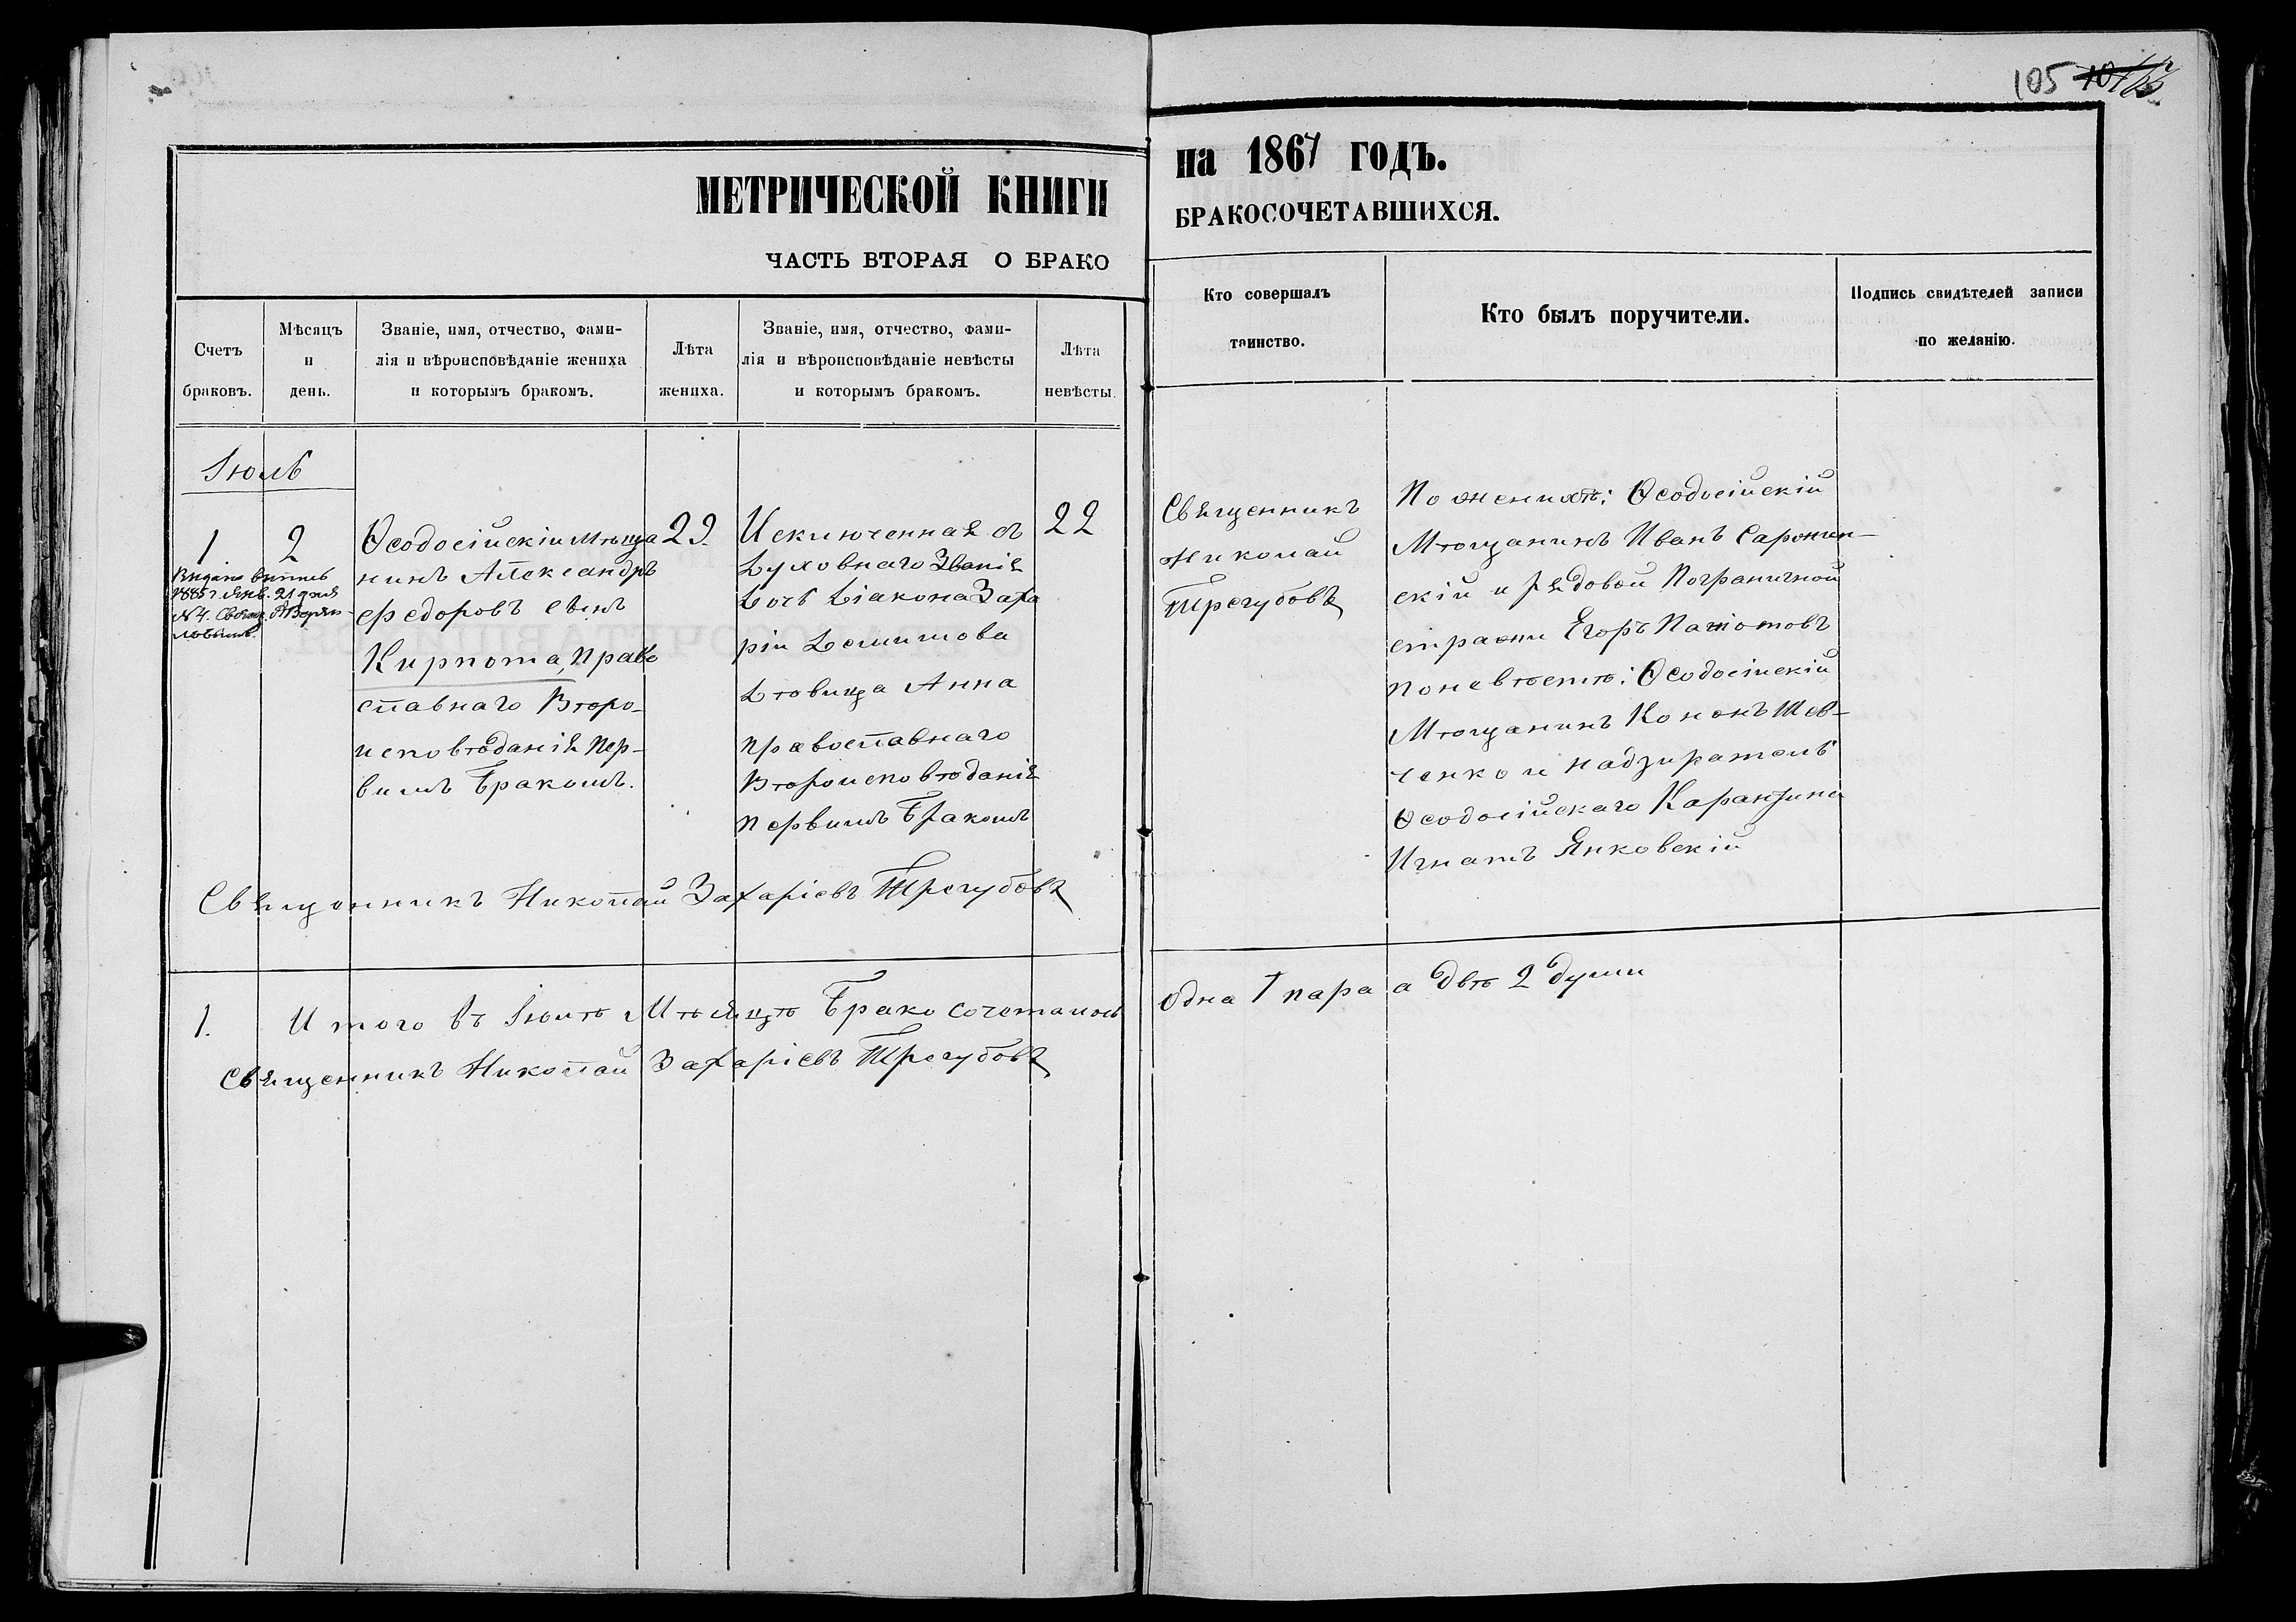 105
МЕТРИЧЕСКОЙ КНИГИ
на 1867 ГОДЪ.
ЧАСТЬ ВТОРАЯ О БРАКО
БРАКОСОЧЕТАВШИХСЯ.
Счетъ
браковъ.
Мѣсяцъ
и
день.
Званіе, имя, отчество, фами-
лія и вѣроисповѣданіе жениха
и которымъ бракомъ.
Лѣта
жениха.
Званіе, имя, отчество, фами-
лія и вѣроисповѣданіе невѣсты
и которымъ бракомъ.
Лѣта
невѣсты.
Кто совершалъ
таинство.
Кто былъ поручители.
Подпись свидѣтелей записи
по желанію.
Іюль
1
2
Выдана выпись
1885 г. Янв. 21 дня
№ 4. Свящ.
Ѳеодосійскій Мѣща
нинъ Александръ
Федоровъ сынъ
Кирпота, Право
славнаго Вѣро-
исповѣданія Пер-
вымъ Бракомъ.
29.
Исключенная съ
Духовнаго Званія
Дочь Діакона Заха
рія Демитова
Дѣвица Анна
православнаго
Вѣроисповѣданія
Первымъ Бракомъ
22
Священникъ
Николай
Трегубовъ
По женихѣ: Ѳеодосійскій
Мѣщанинъ Иванъ
скій и рядовой Пограничной
стражи Егоръ
по невѣстѣ: Ѳеодосійскій
Мѣщанинъ Кононъ Шев-
ченко и надзиратель
Ѳеодосійскаго Карантина
Игнатъ Янковскій
Священникъ Николай Захаріевъ Трегубовъ
1. Итого въ Іюлѣ Мѣсяцѣ Бракосочеталось одна 1 пара а двѣ 2 души
Священникъ Николай Захаріевъ Трегубовъ